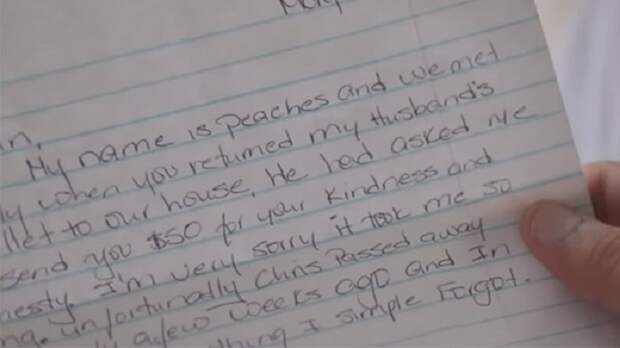 May
n,
My name is Peaches and we met
ly when you returned my Husband's
llet to our house. He had asked me
send you $50 for your Kindness and
nesty. I'm very sorry it took me so
ng. unfortunally Chris Passed away
afew weeks ago and In
thing I simple Forgot.